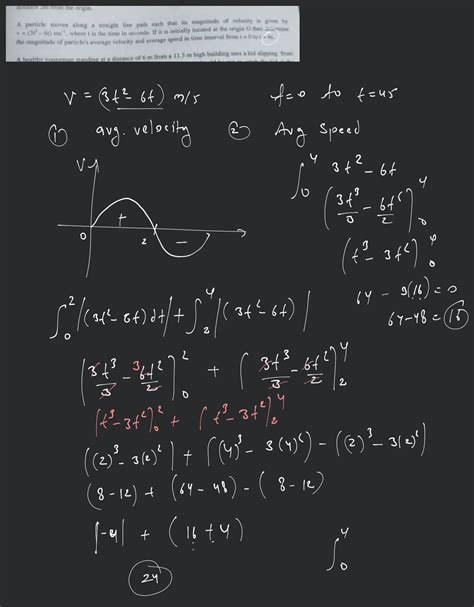 distance 2m from the origin.
A particle moves along a straight line path such that its magnitude of velocity is given by
v = (3t² – 6t) ms⁻¹, where t is the time in seconds. If it is initially located at the origin O then determine
the magnitude of particle's average velocity and average speed in time interval from t = 0 to t = 4s.
A healthy youngman standing at a distance of 6 m from a 11.5 m high building sees a kid slipping from
V = (3t² - 6t) m/s t=0 to t=4s
① avg. velocity ② Avg Speed
V
+
0 2 -
∫₀⁴ 3t² - 6t
(3t³/0 - 6t²/2)₀⁴
(t³ - 3t²)₀⁴
64 - 3(16) = 0
64-48 = 16
∫₀² |(3t² - 6t) dt| + ∫₂⁴ |(3t² - 6t)|
(3t³/3 - ³6t²/2)₀² + (3t³/3 - 6t²/2)₂⁴
(t³ - 3t²)₀² + (t³ - 3t²)₂⁴
((2)³ - 3(2)²) + ((4)³ - 3(4)²) - ((2)³ - 3(2)²)
(8 - 12) + (64 - 48) - (8 - 12)
|-4| + (16 + 4)
24
∫₀⁴